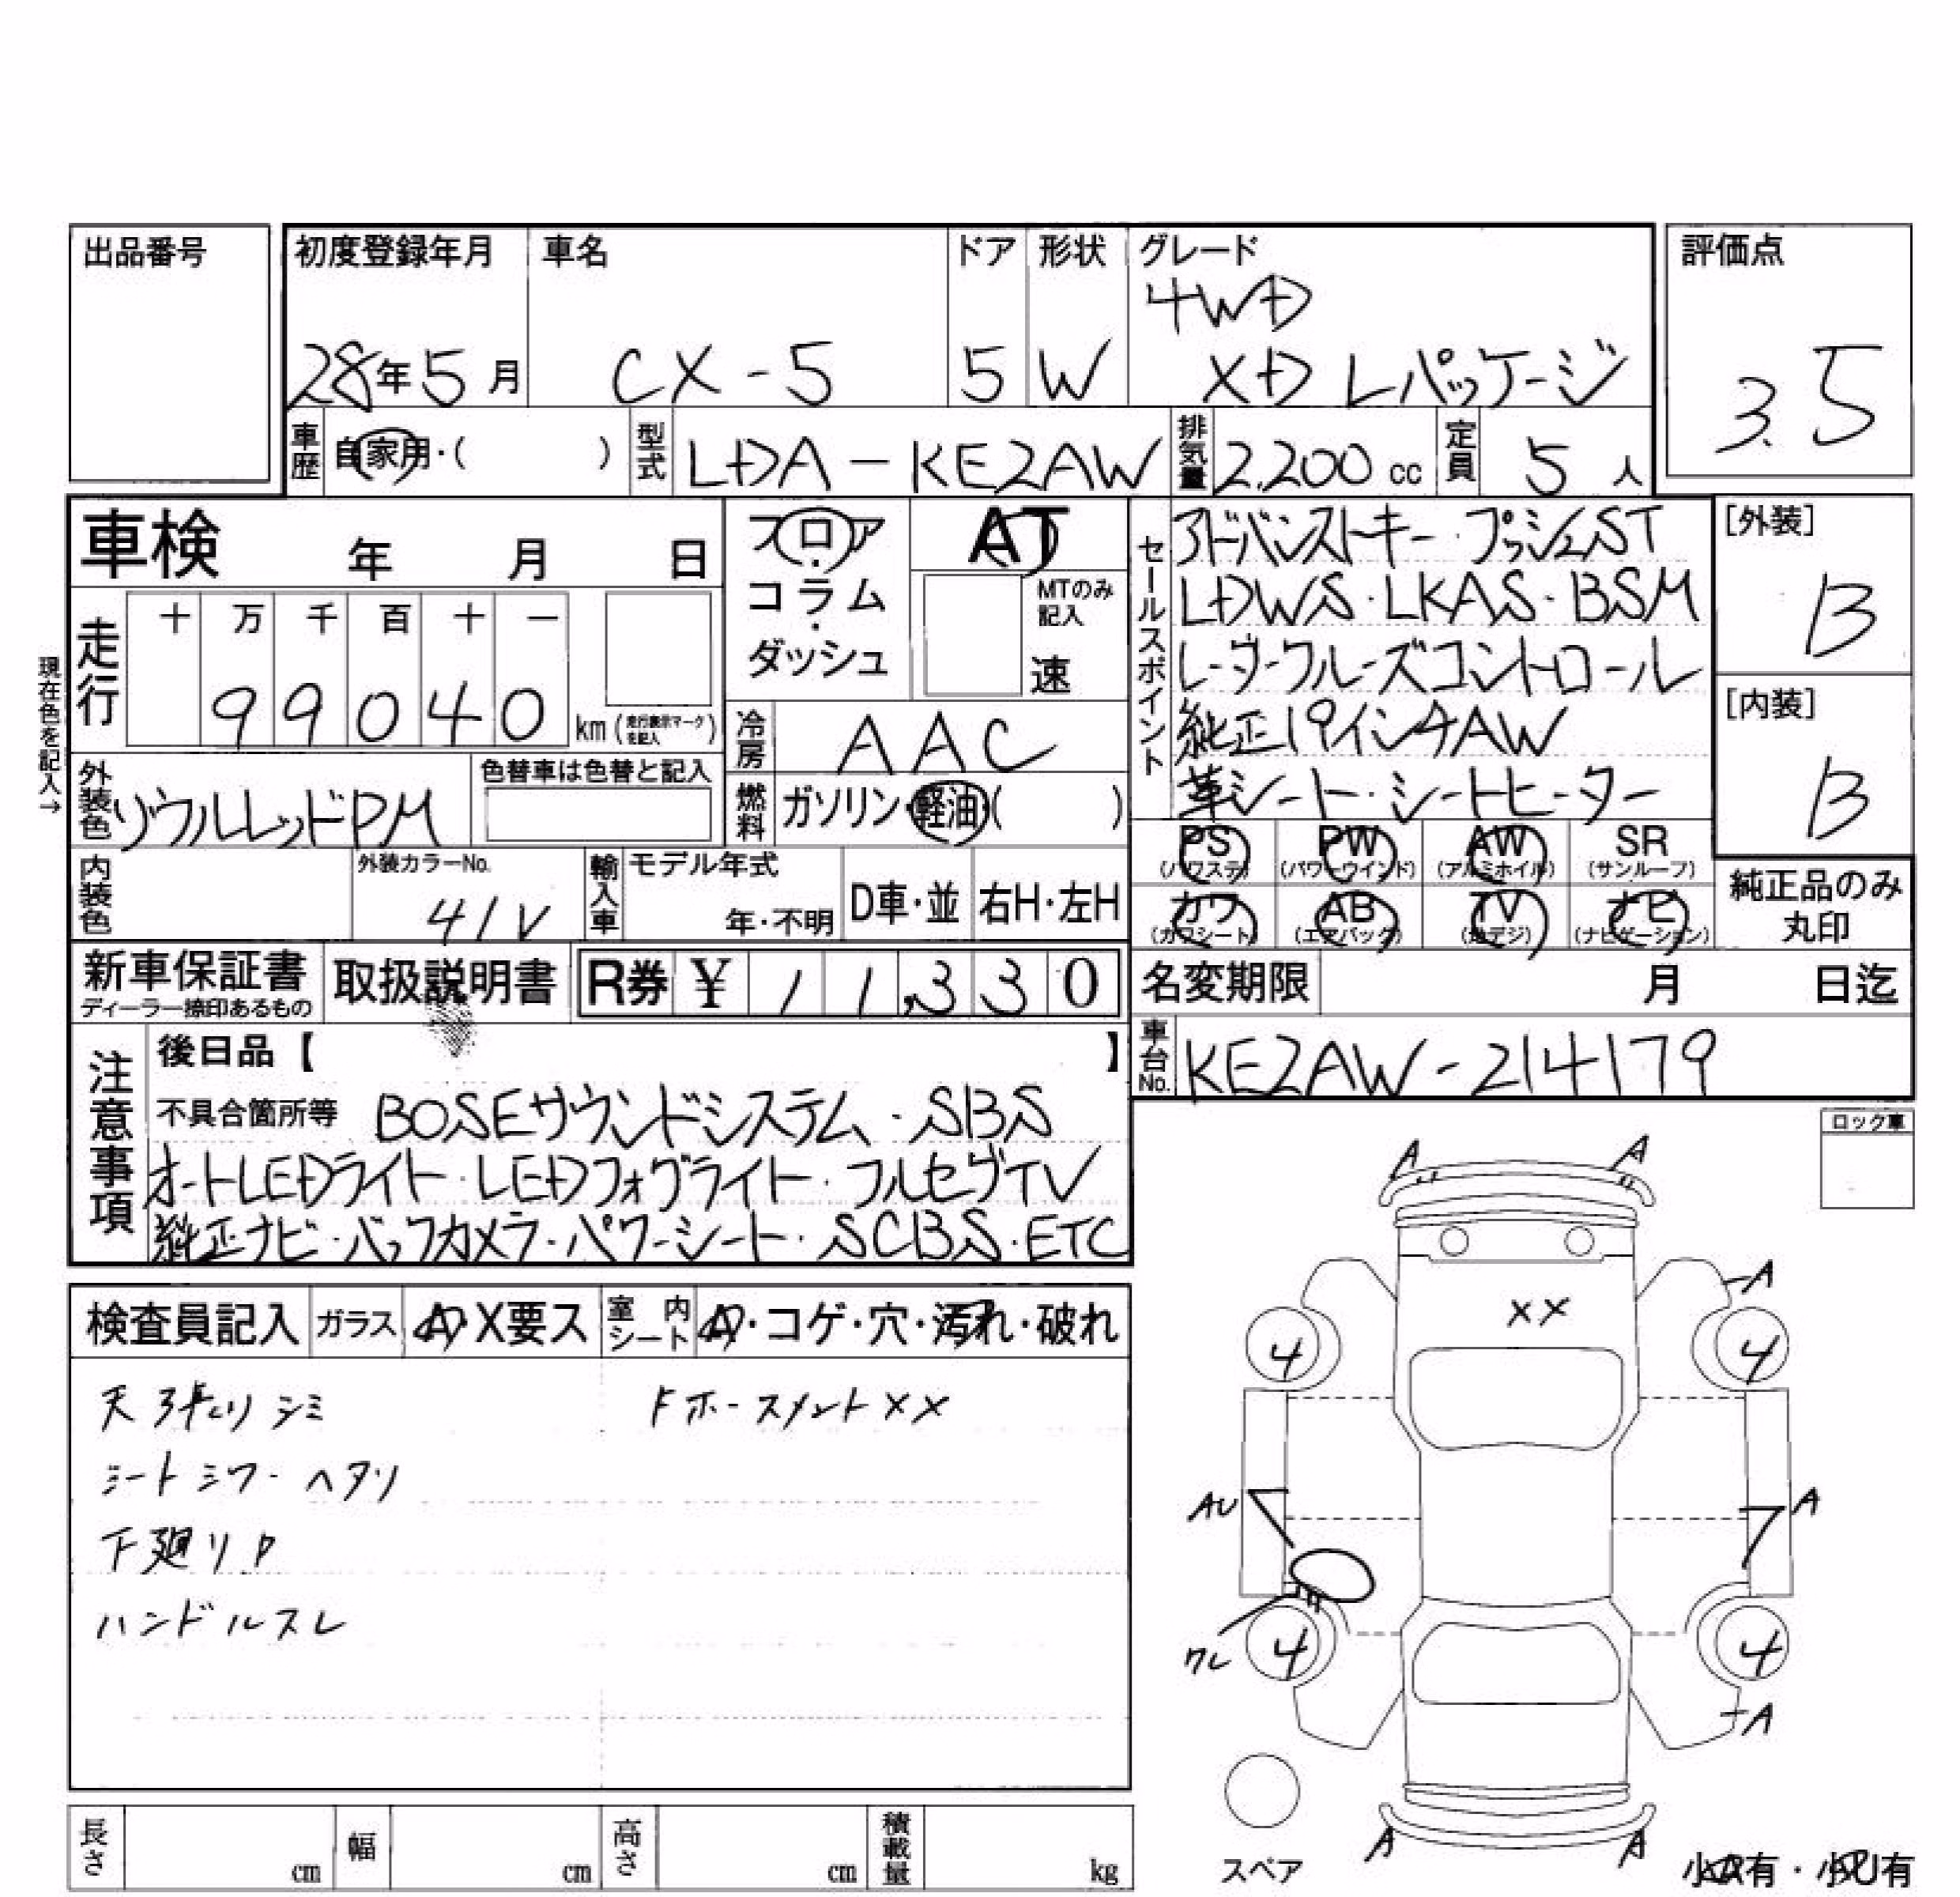 出品番号
初度登録年月 車名 ドア 形状 グレード 評価点
4WD
28年5月 CX-5 5 W XD Lパッケージ 3.5
車歴 自家用・( ) 型式 LDA-KE2AW 排気量 2,200 cc 定員 5 人
車検 年 月 日
フロア・コラム・ダッシュ
AT
MTのみ記入
速
セールスポイント
アドバンストキー プッシュST
LDWS・LKAS・BSM
レーダークルーズコントロール
純正19インチAW
革シート・シートヒーター
[外装]
B
[内装]
B
現在色を記入→
走行 十 万 千 百 十 一
99040 km (走行表示マークを記入)
冷房 AAC
外装色 ソウルレッドPM 色替車は色替と記入
燃料 ガソリン・軽油・( )
内装色 外装カラーNo. 41V 輸入車 モデル年式 年・不明 D車・並 右H・左H
PS (パワステ) PW (パワーウインド) AW (アルミホイル) SR (サンルーフ)
カワ (カワシート) AB (エアバック) TV (地デジ) ナビ (ナビゲーション)
純正品のみ丸印
新車保証書 ディーラー捺印あるもの 取扱説明書 R券 ¥ 11,330
名変期限 月 日迄
車台No. KE2AW-214179
注意事項
後日品【 】
不具合箇所等 BOSEサウンドシステム・SBS
オートLEDライト・LEDフォグライト・フルセグTV
純正ナビ・バックカメラ・パワーシート・SCBS・ETC
ロック車
検査員記入 ガラス A・X要ス 室内シート A・コゲ・穴・汚れ・破れ
天張りシミ Fホースメント××
シートシワ・ヘタリ
下廻りP
ハンドルスレ
A A
A
××
4 4
AU A
ワレ
4 4
A
A A
スペア
小A有・小U有
長さ cm 幅 cm 高さ cm 積載量 kg